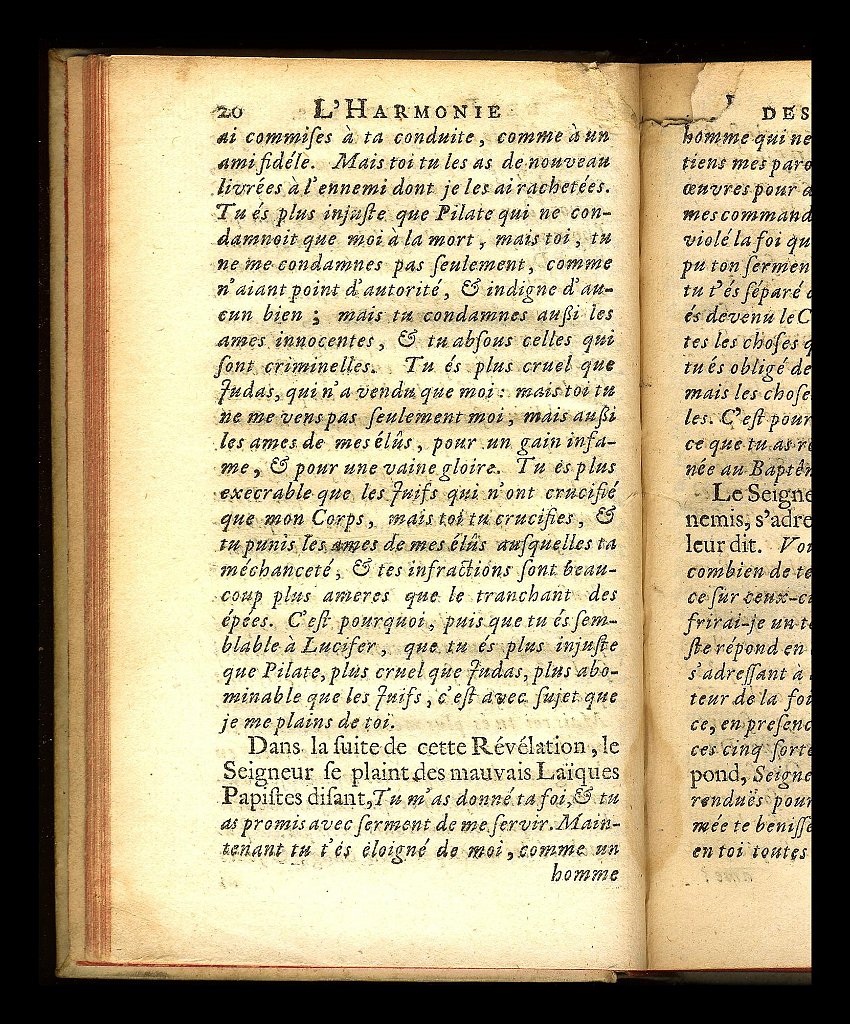 20 L'HARMONIE
ai commiſes à ta conduite, comme à un
ami fidéle. Mais toi tu les as de nouveau
livrées à l'ennemi dont je les ai rachetées.
Tu és plus injuſte que Pilate qui ne con-
damnoit que moi à la mort, mais toi, tu
ne me condamnes pas ſeulement, comme
n'aiant point d'autorité, & indigne d'au-
cun bien; mais tu condamnes auſſi les
ames innocentes, & tu abſous celles qui
ſont criminelles. Tu és plus cruel que
Judas, qui n'a vendu que moi: mais toi tu
ne me vens pas ſeulement moi, mais auſſi
les ames de mes élûs, pour un gain infa-
me, & pour une vaine gloire. Tu és plus
execrable que les Juifs qui n'ont crucifié
que mon Corps, mais toi tu crucifies, &
tu punis les ames de mes élûs auſquelles ta
méchanceté, & tes infractions ſont beau-
coup plus ameres que le tranchant des
épées. C'eſt pourquoi, puis que tu és ſem-
blable à Lucifer, que tu és plus injuſte
que Pilate, plus cruel que Judas, plus abo-
minable que les Juifs, c'eſt avec ſujet que
je me plains de toi.
Dans la ſuite de cette Révélation, le
Seigneur ſe plaint des mauvais Laïques
Papiſtes diſant, Tu m'as donné ta foi, & tu
as promis avec ſerment de me ſervir. Main-
tenant tu t'és éloigné de moi, comme un
homme
DES
homme qui ne
tiens mes paro
œuvres pour d
mes command
violé la foi qu
pu ton ſermen
tu t'és ſéparé
és devenu le C
tes les choſes q
tu és obligé de
mais les choſe
les. C'eſt pour
ce que tu as re
née au Baptêm
Le Seigne
nemis, s'adre
leur dit. Voi
combien de te
ce ſur ceux-ci
frirai-je un te
ſte répond en
s'adreſſant à
teur de la foi
ce, en preſenc
ces cinq ſorte
pond, Seigne
renduës pour
mée te beniſſe
en toi toutes